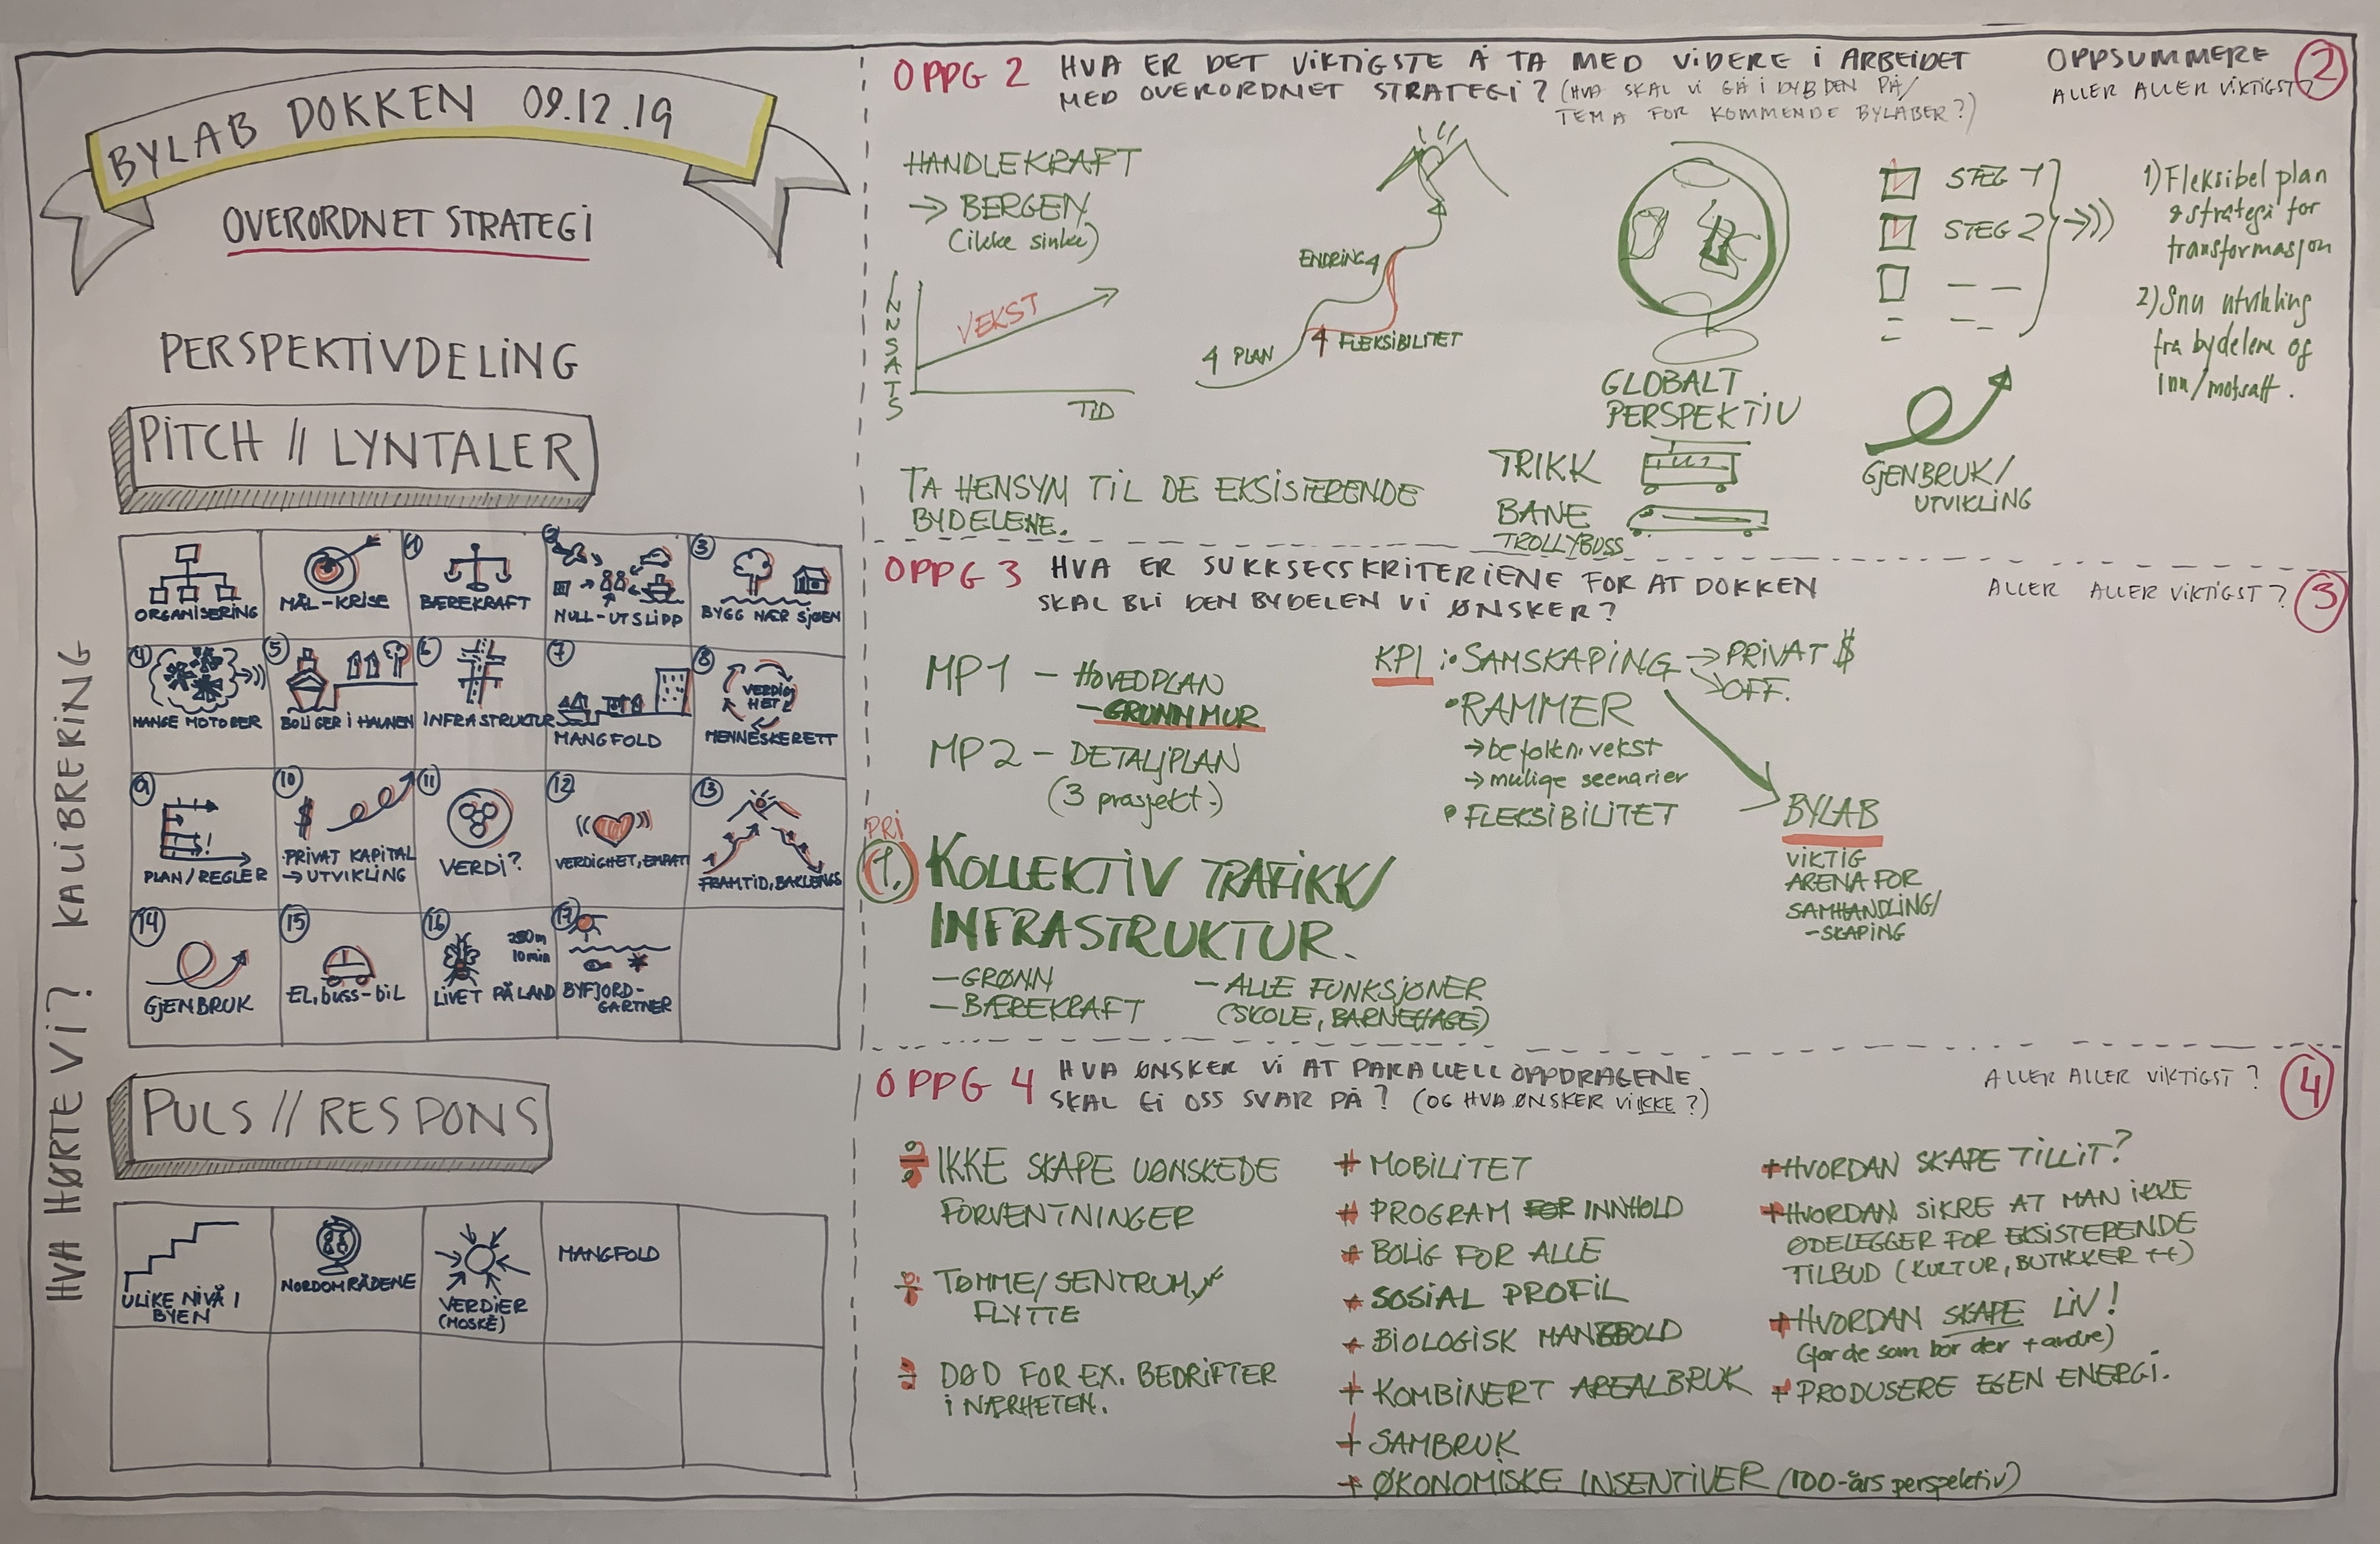 BYLAB DOKKEN 09.12.19
OVERORDNET STRATEGI
PERSPEKTIVDELING
PITCH // LYNTALER
HVA HØRTE VI? KALIBRERING
ORGANISERING
MÅL-KRISE
1
BÆREKRAFT
2
NULL-UTSLIPP
3
BYGG NÆR SJØEN
4
MANGE MOTORER
5
BOLIGER I HAVNEN
6
INFRASTRUKTUR
7
MANGFOLD
8
VERDIG
HET?
MENNESKERETT
9
!
PLAN/REGLER
10
$
PRIVAT KAPITAL
→ UTVIKLING
11
VERDI?
12
VERDIGHET, EMPATI
13
FRAMTID, BAKLENGS
14
GJENBRUK
15
EL, buss-bil
16
250m
10min
LIVET PÅ LAND
17
BYFJORD-
GARTNER
PULS // RESPONS
ULIKE NIVÅ I
BYEN
NORDOMRÅDENE
VERDIER
(MOSKÉ)
MANGFOLD
OPPG 2 HVA ER DET VIKTIGSTE Å TA MED VIDERE I ARBEIDET
MED OVERORDNET STRATEGI? (HVA SKAL VI GÅ I DYBDEN PÅ/
TEMA FOR KOMMENDE BYLABER?)
OPPSUMMERE
ALLER ALLER VIKTIGST?
2
HANDLEKRAFT
→ BERGEN
(ikke sinke)
INNSATS
VEKST
TID
PLAN
FLEKSIBILITET
ENDRING
GLOBALT
PERSPEKTIV
STEG 1
STEG 2
1) Fleksibel plan
& strategi for
transformasjon
2) Snu utvikling
fra bydelene og
inn/motsatt.
TA HENSYM TIL DE EKSISTERENDE
BYDELENE.
TRIKK
BANE
TROLLYBUSS
GJENBRUK/
UTVIKLING
OPPG 3 HVA ER SUKKSESSKRITERIENE FOR AT DOKKEN
SKAL BLI DEN BYDELEN VI ØNSKER?
ALLER ALLER VIKTIGST?
3
MP1 - HOVEDPLAN
- GRUNNMUR
MP2 - DETALJPLAN
(3 prosjekt.)
KPI: • SAMSKAPING → PRIVAT $
→ OFF.
• RAMMER
→ befolkn.vekst
→ mulige scenarier
• FLEKSIBILITET
BYLAB
VIKTIG
ARENA FOR
SAMHANDLING/
-SKAPING
PRI
1. KOLLEKTIV TRAFIKK/
INFRASTRUKTUR.
- GRØNN
- BÆREKRAFT
- ALLE FUNKSJONER
(SKOLE, BARNEHAGE)
OPPG 4 HVA ØNSKER VI AT PARALLELLOPPDRAGENE
SKAL GI OSS SVAR PÅ? (OG HVA ØNSKER VI IKKE?)
ALLER ALLER VIKTIGST?
4
÷ IKKE SKAPE UØNSKEDE
FORVENTNINGER
÷ TØMME/SENTRUM
FLYTTE
÷ DØD FOR EX. BEDRIFTER
I NÆRHETEN.
+ MOBILITET
+ PROGRAM FOR INNHOLD
+ BOLIG FOR ALLE
+ SOSIAL PROFIL
+ BIOLOGISK MANGFOLD
+ KOMBINERT AREALBRUK
+ SAMBRUK
+ ØKONOMISKE INSENTIVER (100-års perspektiv)
+ HVORDAN SKAPE TILLIT?
+ HVORDAN SIKRE AT MAN IKKE
ØDELEGGER FOR EKSISTERENDE
TILBUD (KULTUR, BUTIKKER ++)
+ HVORDAN SKAPE LIV!
(for de som bor der + andre)
+ PRODUSERE EGEN ENERGI.